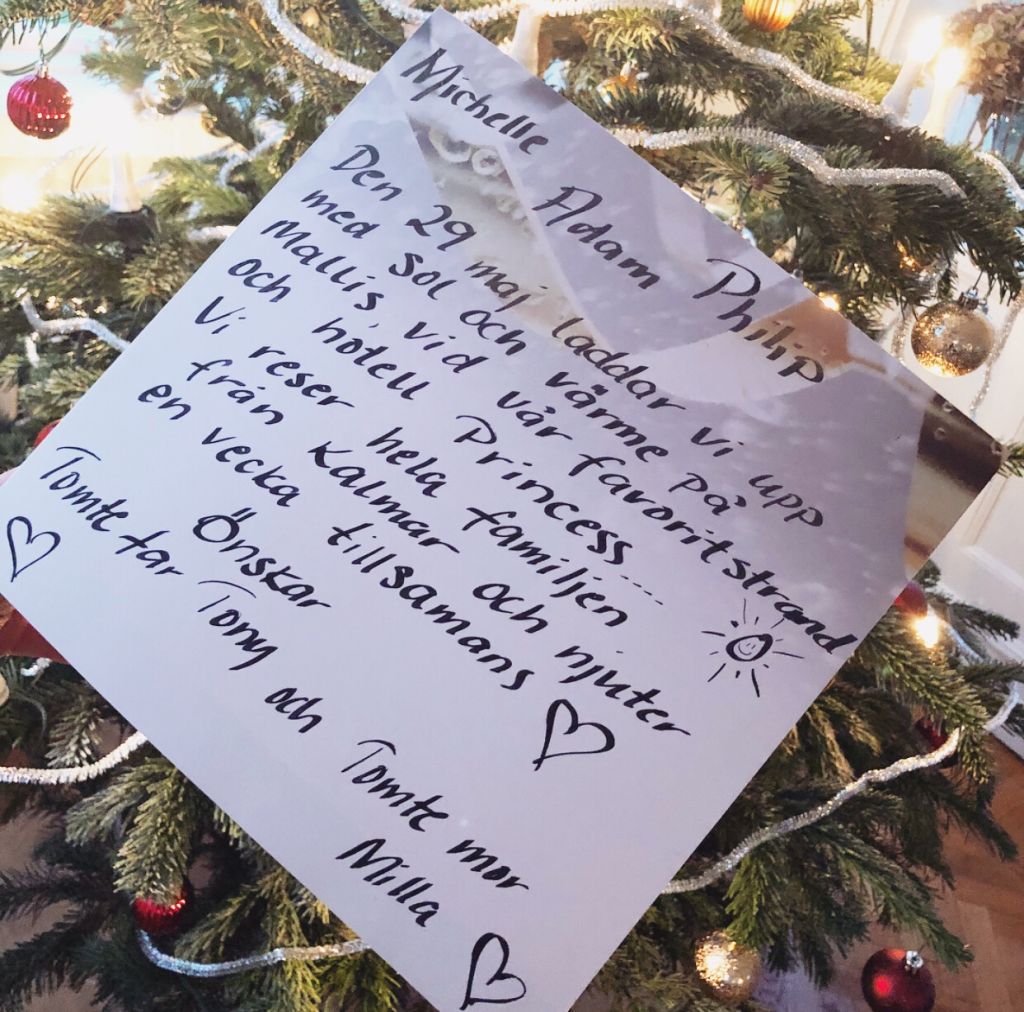 Michelle Adam Philip
Den 29 maj laddar vi upp
med sol och värme på
Mallis vid vår favoritstrand
och hotell Princess....
Vi reser hela familjen
från Kalmar och njuter
en vecka tillsamans
Önskar
Tomte far Tony och Tomte mor
Milla